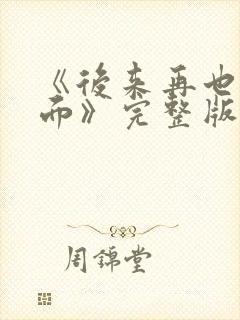 《後来再也
而》完整版
周錦堂